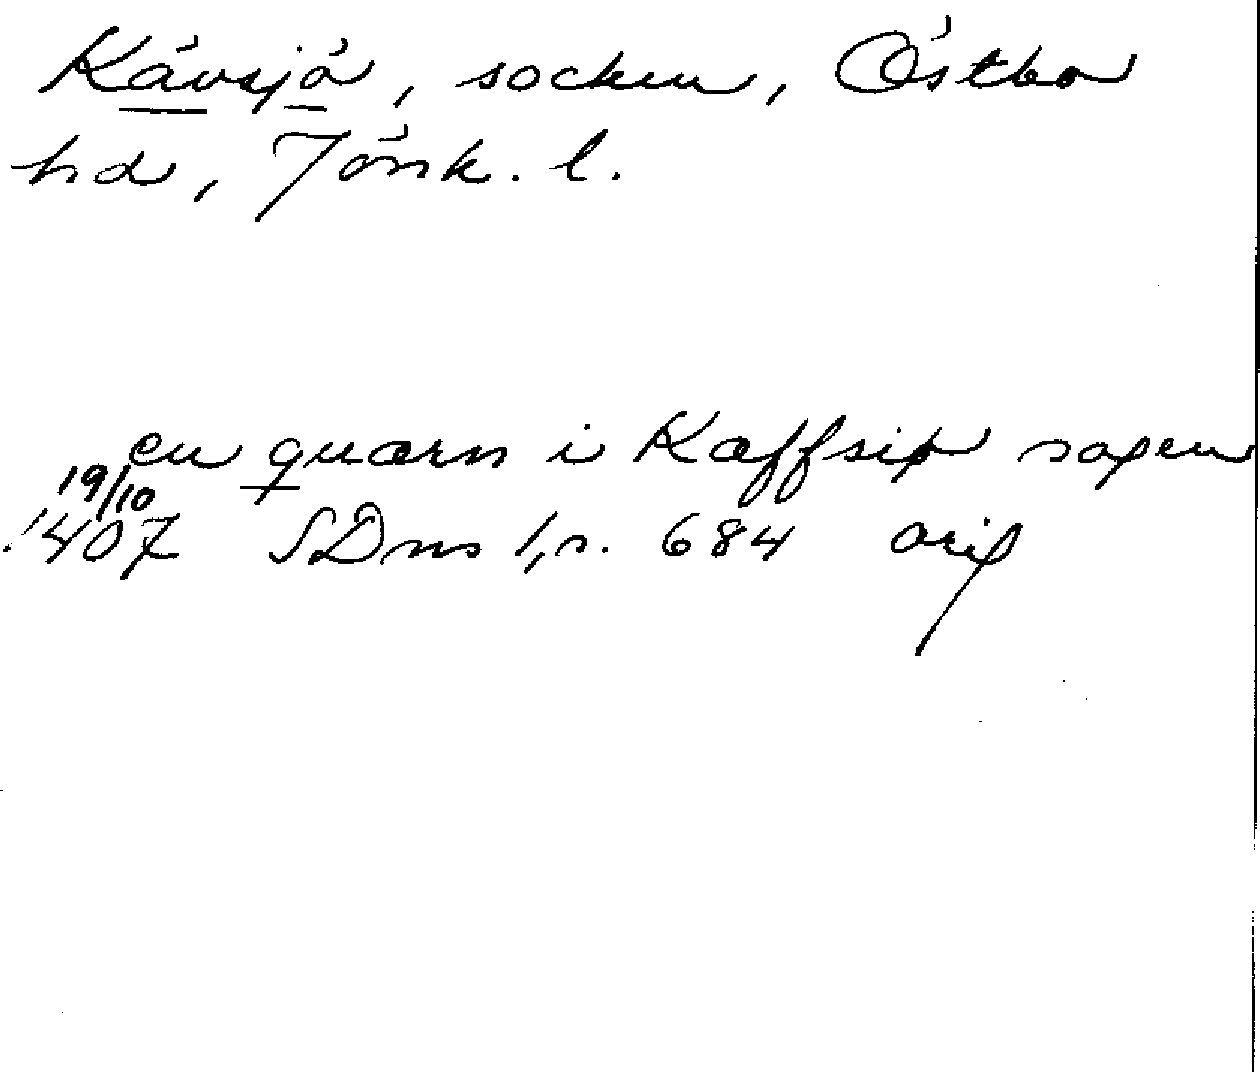 Kävsjö, socken, Östbo
hd, Jönk. l.
en quærn i Kaffsiø sogen
19/10
1407 SDns 1, s. 684 orig